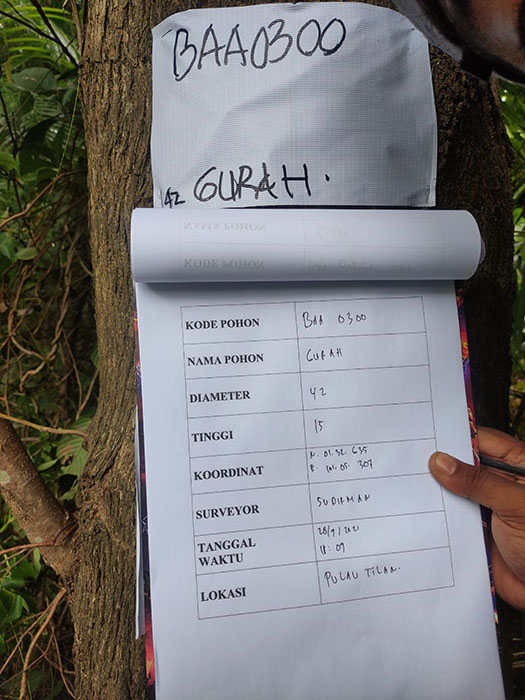 BAA0300
42 GURAH.
KODE POHON BAA 0300
NAMA POHON GURAH
DIAMETER 42
TINGGI 15
KOORDINAT N. 01. 52. 635
E. 101. 05. 307
SURVEYOR SUDIRMAN
TANGGAL 28/9/2021
WAKTU 11:09
LOKASI PULAU TILAN.